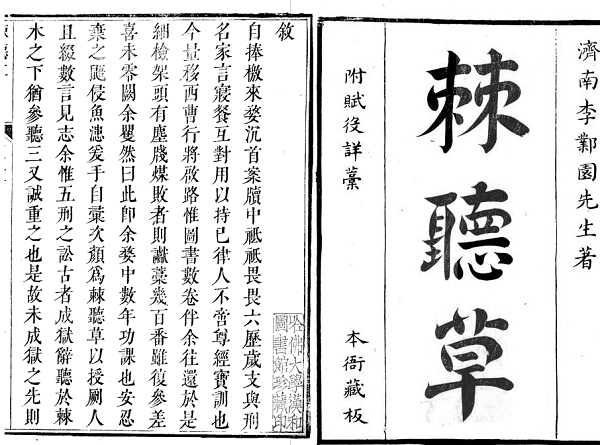 濟南李鄴園先生著
棘聽草
附賦役詳藁
本衙藏板
敘
自捧檄來婺沉首案牘中祇祇畏畏六歷歲支與刑
名家言寢餐互對用以持已律人不啻尊經寶訓也
今量移西曹行將啟路惟圖書數卷伴余往還於是
細檢架頭有塵牋煤敗者則讞藁幾百番雖復參差
喜未零闕余瞿然曰此卽余婺中數年功課也安忍
棄之颺侵魚漶爰手自彙次顏爲棘聽草以授劂人
且綴數言見志余惟五刑之訟古者成獄辭聽於棘
木之下猶參聽三又誠重之也是故未成獄之先則
哈佛大學漢和
圖書館珍藏印